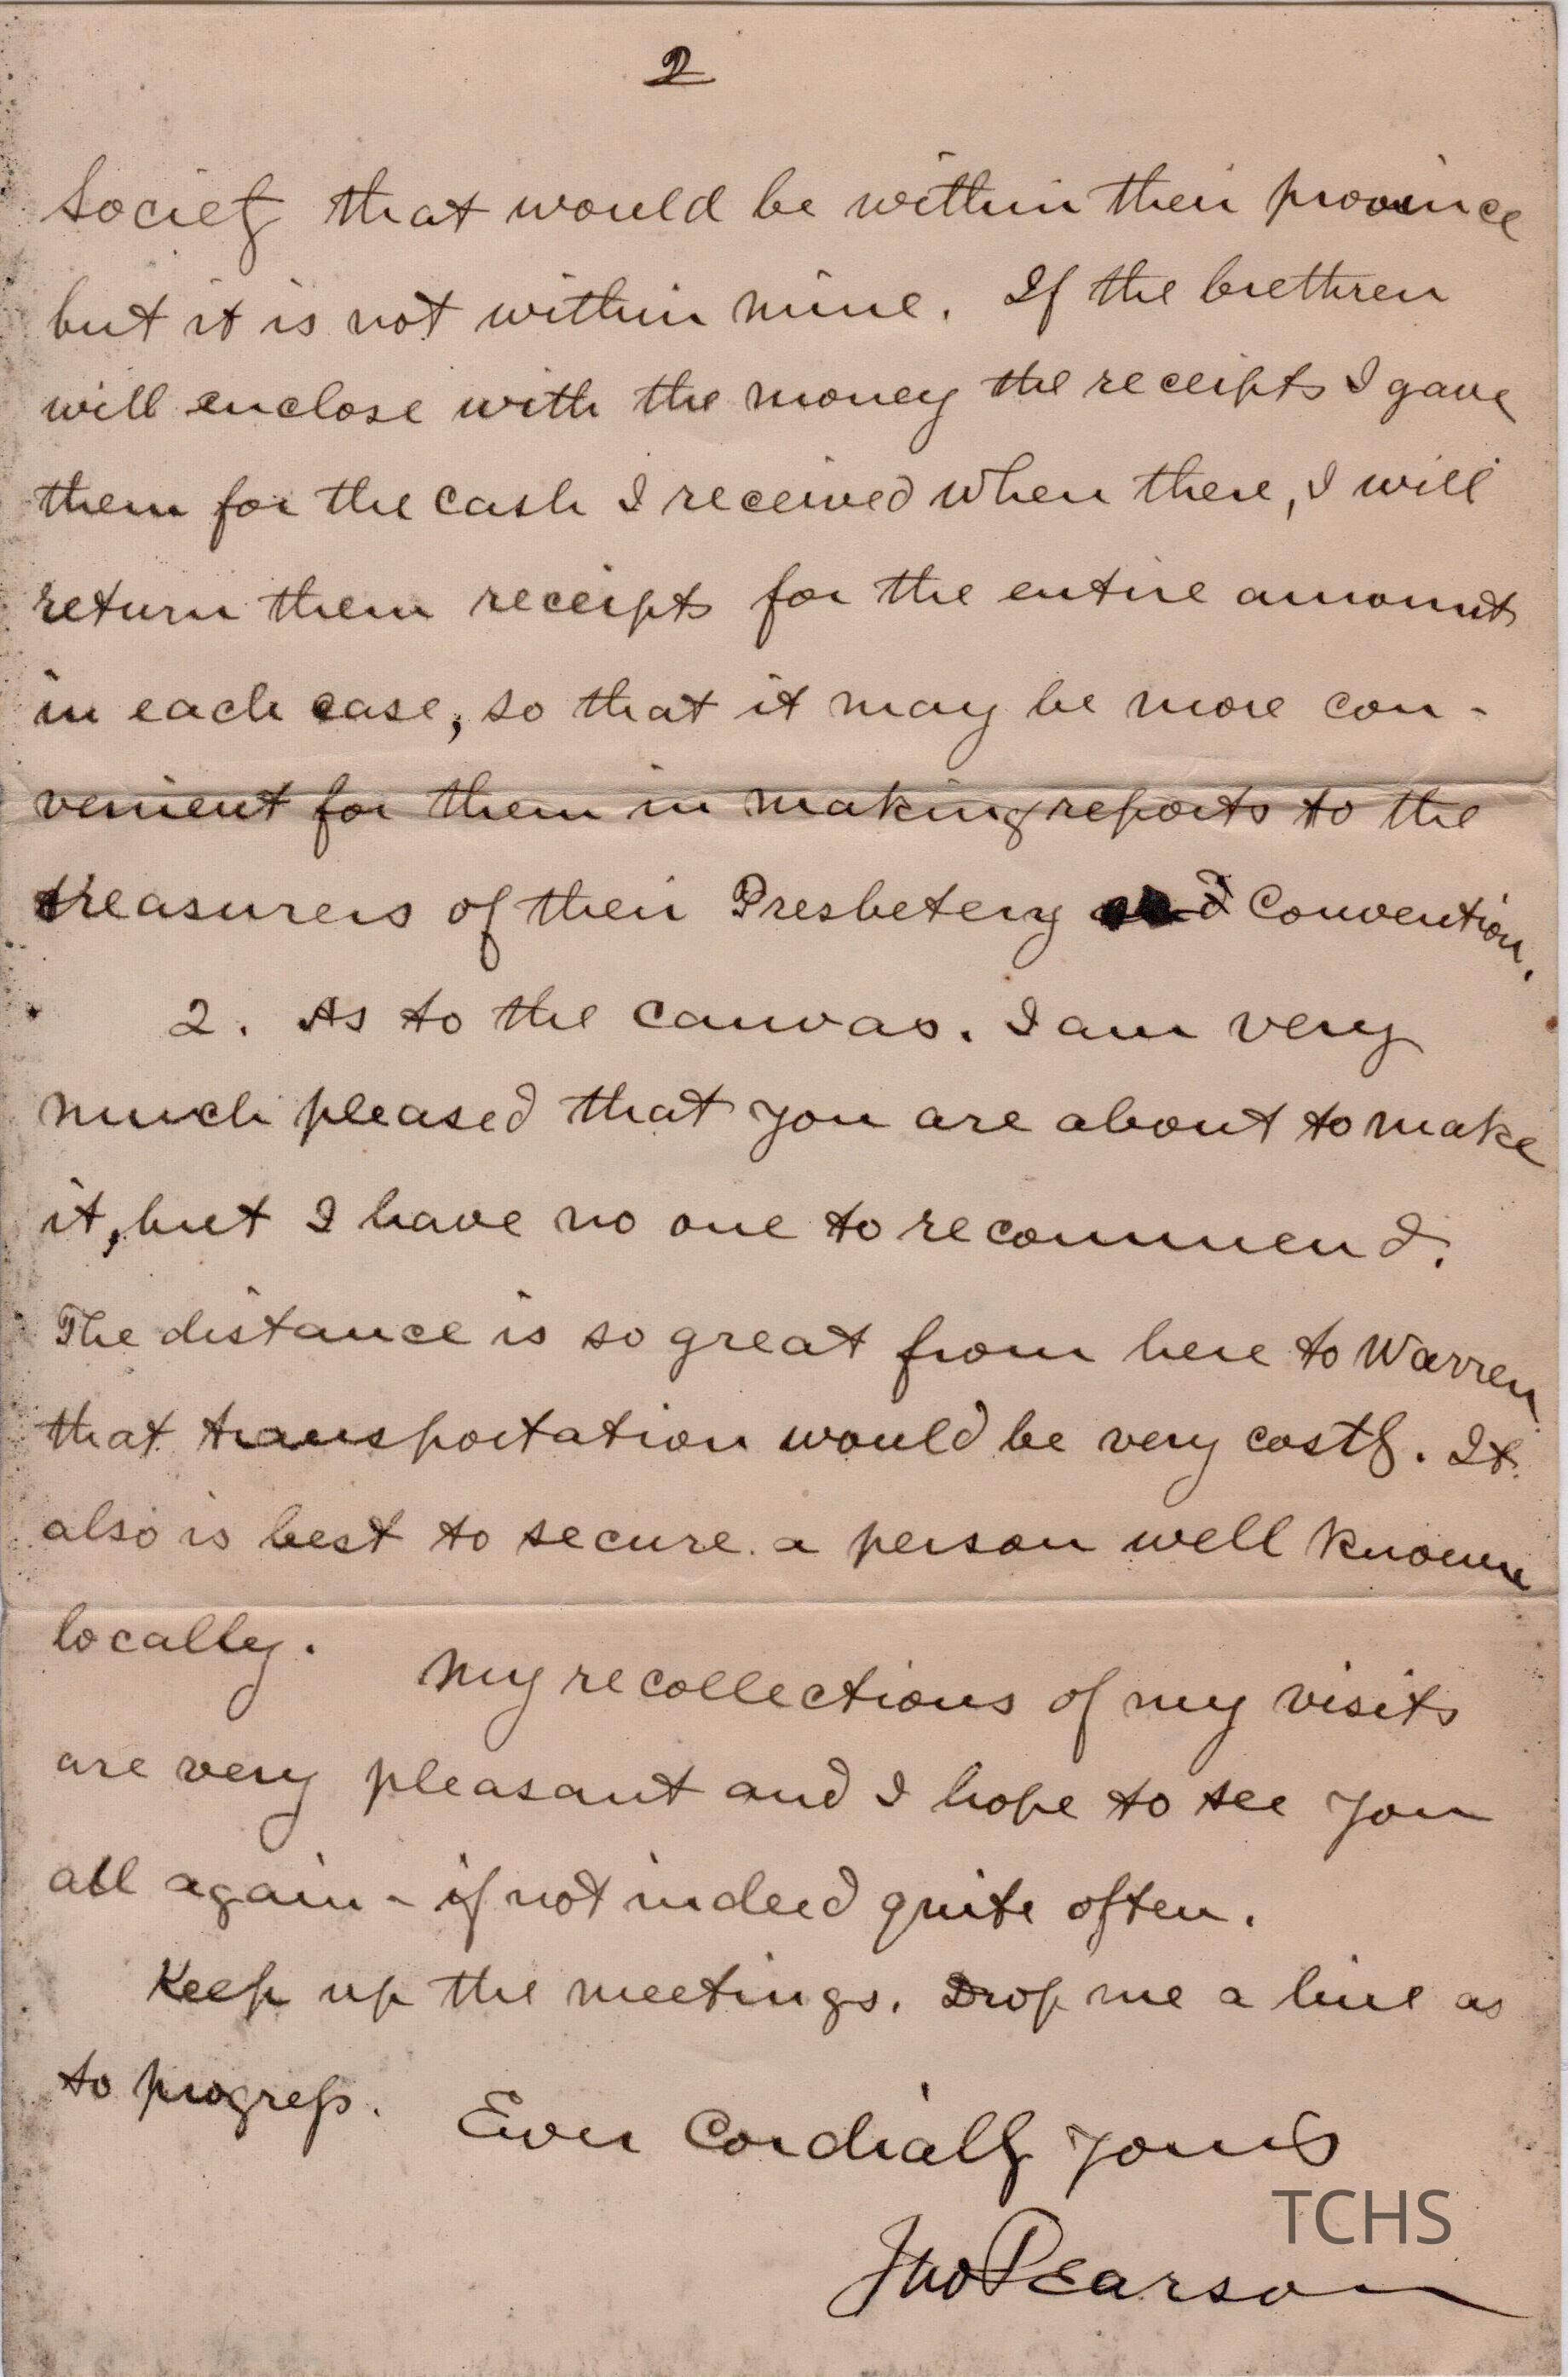 2
Society that would be within their province
but it is not within mine. If the brethren
will enclose with the money the receipts I gave
them for the cash I received when there, I will
return them receipts for the entire amount
in each case, so that it may be more con-
venient for them in making reports to the
treasurers of their Presbetery and Convention.
2. As to the canvas. I am very
much pleased that you are about to make
it, but I have no one to recommend.
The distance is so great from here to Warren
that transportation would be very costly. It
also is best to secure a person well known
locally. My recollections of my visits
are very pleasant and I hope to see you
all again - if not indeed quite often.
Keep up the meetings. Drop me a line as
to progress.
Ever Cordially Yours
Jno Pearson
TCHS